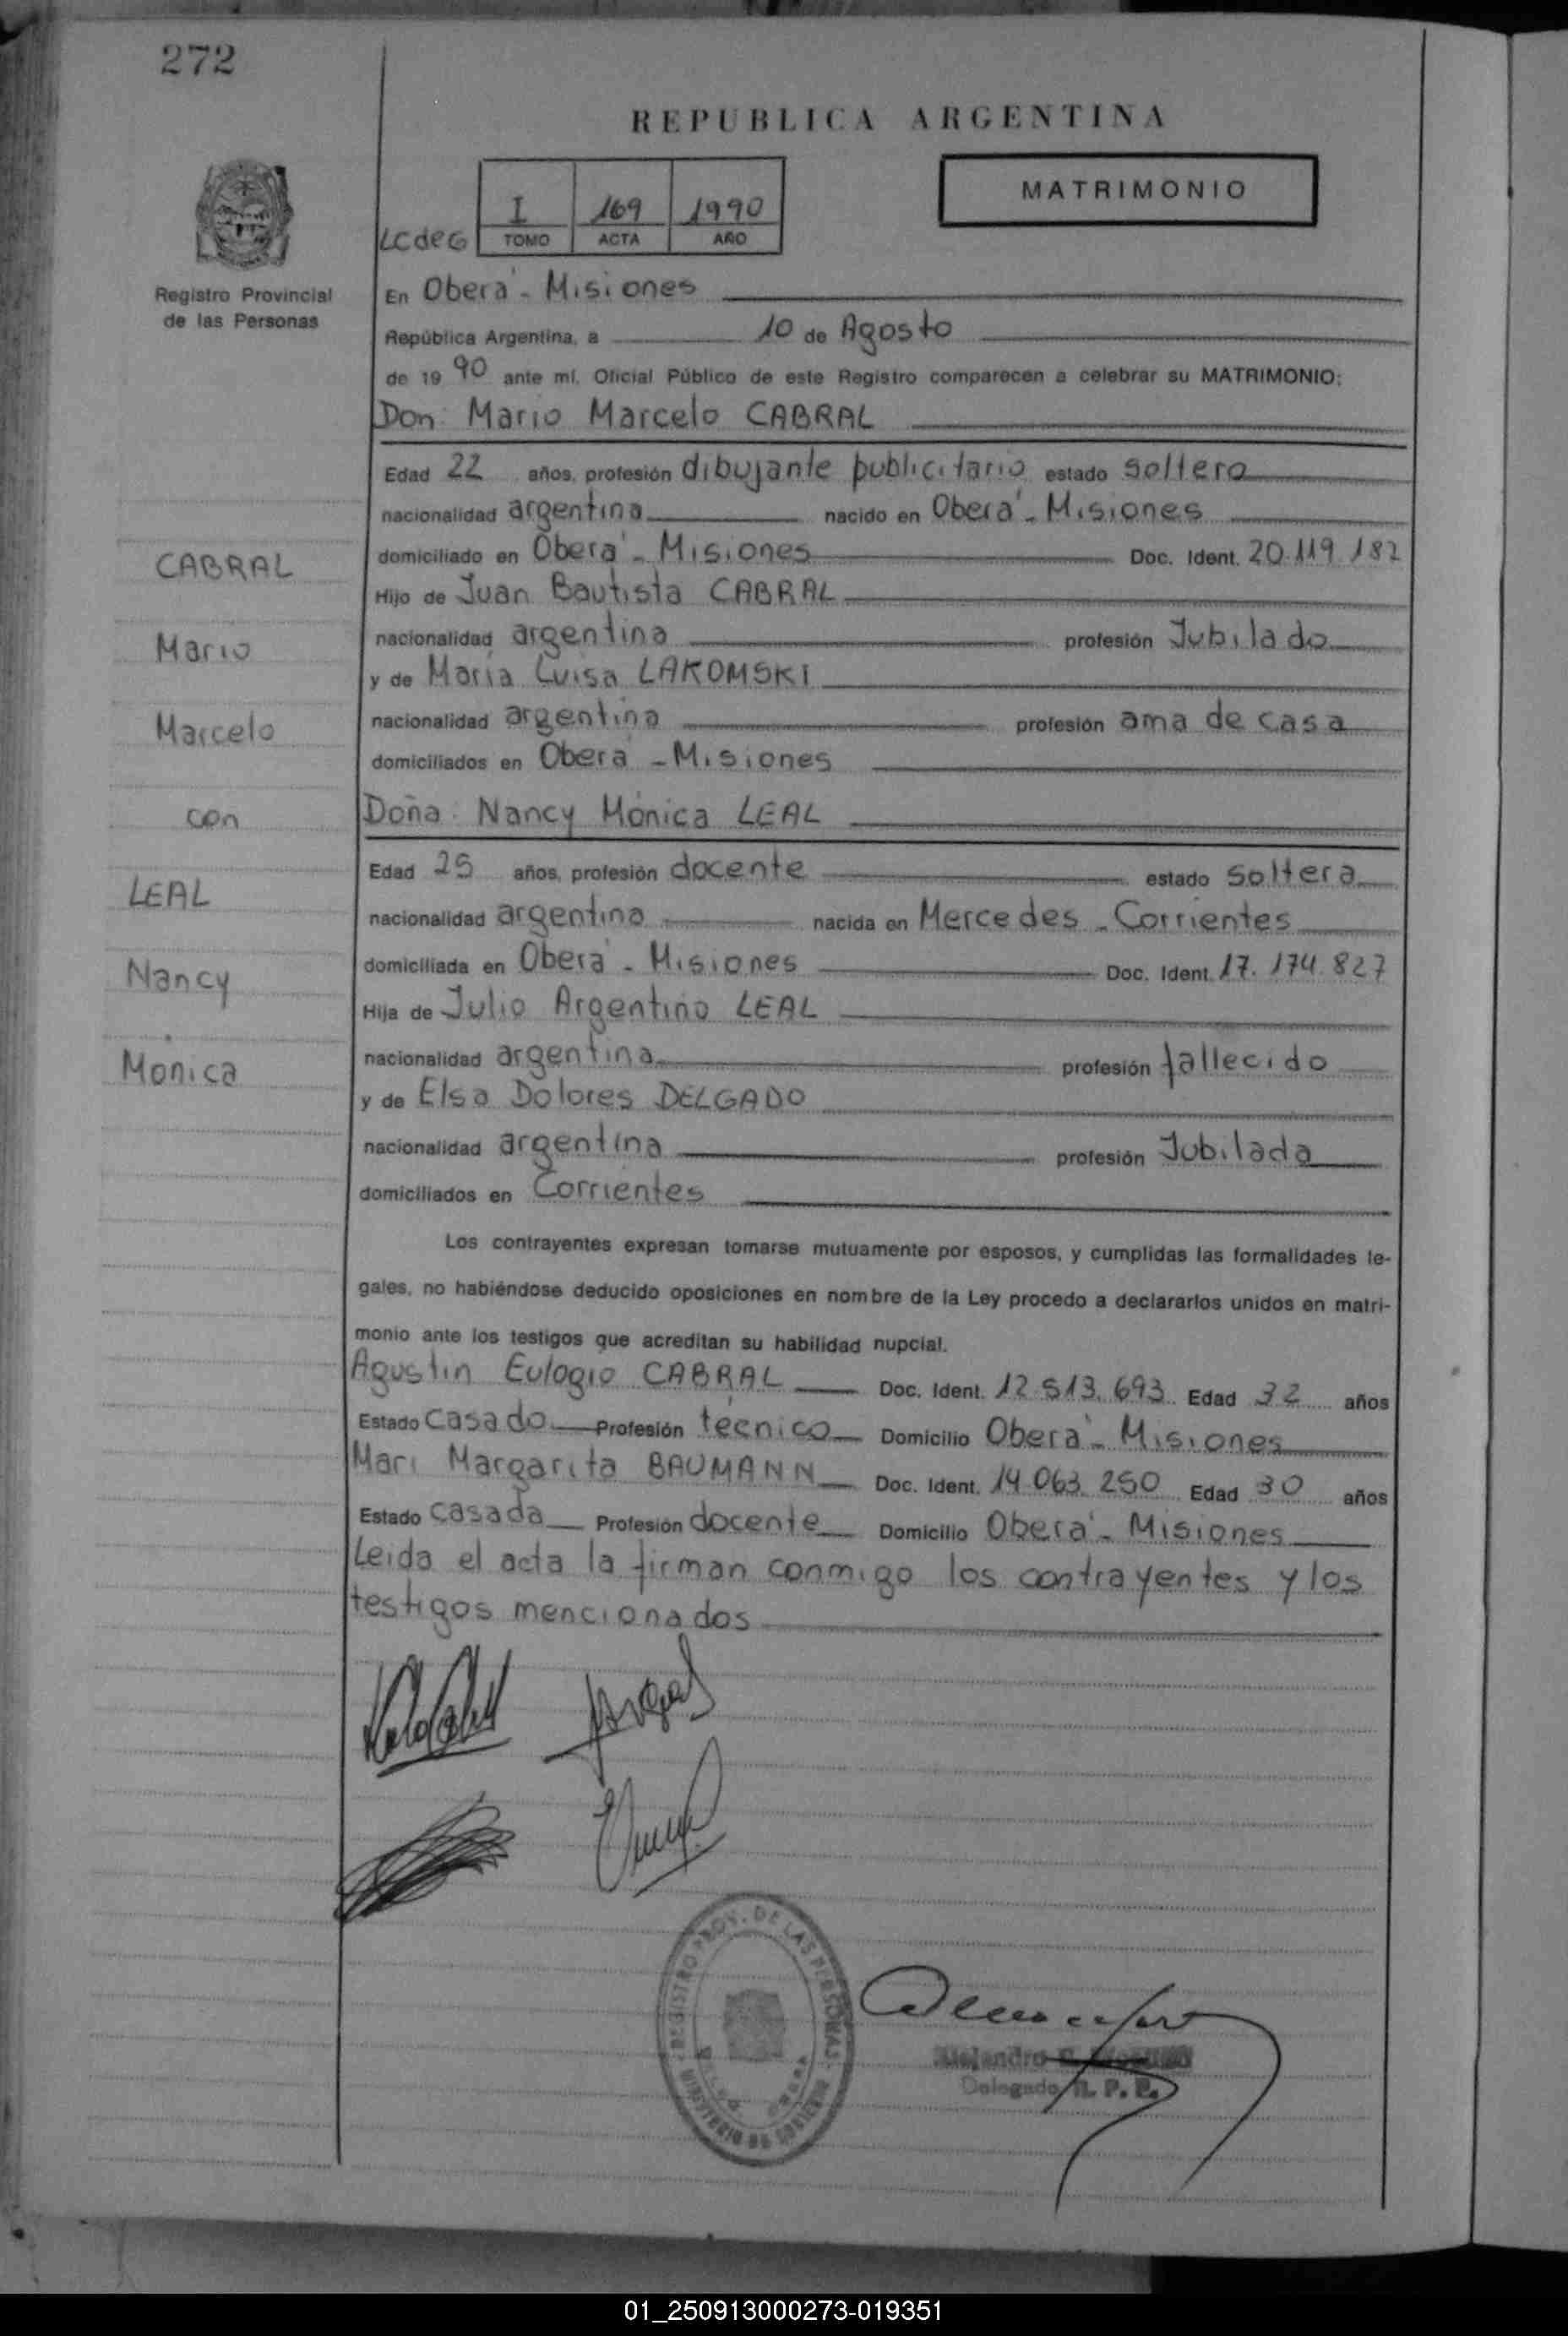 272
REPUBLICA ARGENTINA
MATRIMONIO
I 169 1990
LCdeG TOMO ACTA AÑO
Registro Provincial
de las Personas
En Oberá - Misiones
República Argentina, a 10 de Agosto
de 19 90 ante mí, Oficial Público de este Registro comparecen a celebrar su MATRIMONIO:
Don: Mario Marcelo CABRAL
Edad 22 años, profesión dibujante publicitario estado soltero
nacionalidad argentina nacido en Oberá - Misiones
domiciliado en Oberá - Misiones Doc. Ident. 20.119.182
Hijo de Juan Bautista CABRAL
nacionalidad argentina profesión Jubilado
y de María Luisa LAKOMSKI
nacionalidad argentina profesión ama de casa
domiciliados en Oberá - Misiones
Doña: Nancy Mónica LEAL
Edad 25 años, profesión docente estado soltera
nacionalidad argentina nacida en Mercedes - Corrientes
domiciliada en Oberá - Misiones Doc. Ident. 17.174.827
Hija de Julio Argentino LEAL
nacionalidad argentina profesión fallecido
y de Elsa Dolores DELGADO
nacionalidad argentina profesión Jubilada
domiciliados en Corrientes
CABRAL
Mario
Marcelo
con
LEAL
Nancy
Mónica
Los contrayentes expresan tomarse mutuamente por esposos, y cumplidas las formalidades le-
gales, no habiéndose deducido oposiciones en nombre de la Ley procedo a declararlos unidos en matri-
monio ante los testigos que acreditan su habilidad nupcial.
Agustín Eulogio CABRAL Doc. Ident. 12.513.693 Edad 32 años
Estado casado Profesión técnico Domicilio Oberá - Misiones
Mari Margarita BAUMANN Doc. Ident. 14.063.250 Edad 30 años
Estado casada Profesión docente Domicilio Oberá - Misiones
Leída el acta la firman conmigo los contrayentes y los
testigos mencionados
REGISTRO PROV. DE LAS PERSONAS
MINISTERIO DE GOBIERNO
Alejandro
Delegado R. P. P.
01_250913000273-019351